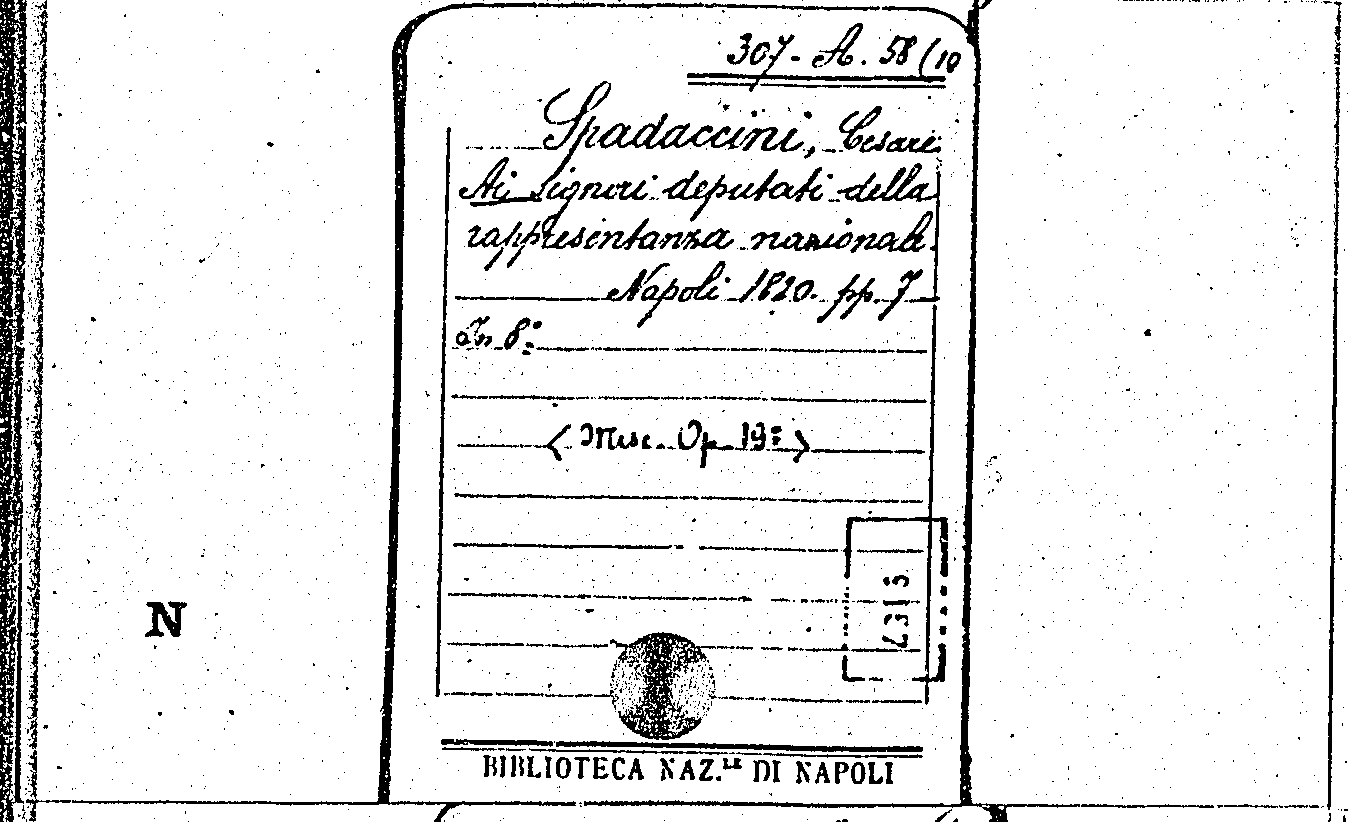 307- A. 58 (10
Spadaccini, Cesare
Ai Signori deputati della
rappresentanza nazionale.
Napoli 1820. pp. 7
In 8º
( Misc. Op 19º )
7315
N
BIBLIOTECA NAZ.LE DI NAPOLI